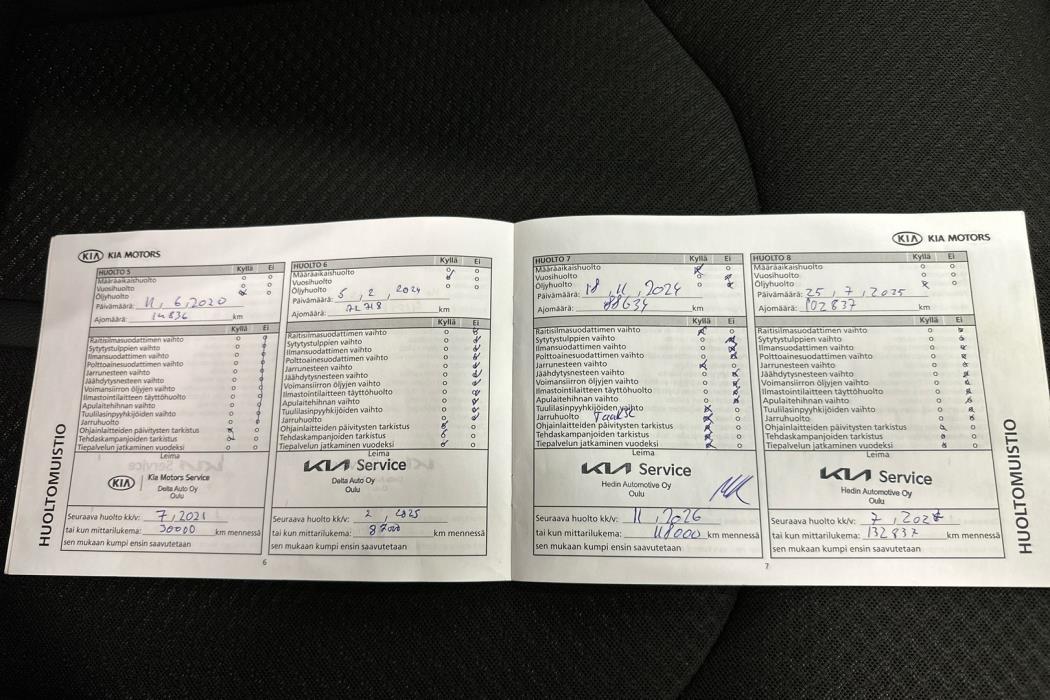 KIA KIA MOTORS
HUOLTO 5 Kyllä Ei
Määräaikaishuolto
Vuosihuolto
Öljyhuolto
Päivämäärä: 11, 6, 2020
Ajomäärä: km
Kyllä Ei
Raitisilmasuodattimen vaihto
Sytytystulppien vaihto
Ilmansuodattimen vaihto
Polttoainesuodattimen vaihto
Jarrunesteen vaihto
Jäähdytysnesteen vaihto
Voimansiirron öljyjen vaihto
Ilmastointilaitteen täyttöhuolto
Apulaitehihnan vaihto
Tuulilasinpyyhkijöiden vaihto
Jarruhuolto
Ohjainlaitteiden päivitysten tarkistus
Tehdaskampanjoiden tarkistus
Tiepalvelun jatkaminen vuodeksi
Leima
KIA Kia Motors Service
Delta Auto Oy
Oulu
Seuraava huolto kk/v: 7, 2021
tai kun mittarilukema: 30000 km mennessä
sen mukaan kumpi ensin saavutetaan
HUOLTO 6 Kyllä Ei
Määräaikaishuolto
Vuosihuolto
Öljyhuolto
Päivämäärä: 5, 2, 2024
Ajomäärä: 72718 km
Kyllä Ei
Raitisilmasuodattimen vaihto
Sytytystulppien vaihto
Ilmansuodattimen vaihto
Polttoainesuodattimen vaihto
Jarrunesteen vaihto
Jäähdytysnesteen vaihto
Voimansiirron öljyjen vaihto
Ilmastointilaitteen täyttöhuolto
Apulaitehihnan vaihto
Tuulilasinpyyhkijöiden vaihto
Jarruhuolto
Ohjainlaitteiden päivitysten tarkistus
Tehdaskampanjoiden tarkistus
Tiepalvelun jatkaminen vuodeksi
Leima
KIA Service
Delta Auto Oy
Oulu
Seuraava huolto kk/v: 2, 2025
tai kun mittarilukema: km mennessä
sen mukaan kumpi ensin saavutetaan
HUOLTOMUISTIO
6
KIA KIA MOTORS
HUOLTO 7 Kyllä Ei
Määräaikaishuolto
Vuosihuolto
Öljyhuolto
Päivämäärä: 18, 11, 2024
Ajomäärä: 88634 km
Kyllä Ei
Raitisilmasuodattimen vaihto
Sytytystulppien vaihto
Ilmansuodattimen vaihto
Polttoainesuodattimen vaihto
Jarrunesteen vaihto
Jäähdytysnesteen vaihto
Voimansiirron öljyjen vaihto
Ilmastointilaitteen täyttöhuolto
Apulaitehihnan vaihto
Tuulilasinpyyhkijöiden vaihto
Jarruhuolto
Ohjainlaitteiden päivitysten tarkistus
Tehdaskampanjoiden tarkistus
Tiepalvelun jatkaminen vuodeksi
Leima
KIA Service
Hedin Automotive Oy
Oulu
Seuraava huolto kk/v: 11, 2026
tai kun mittarilukema: 118000 km mennessä
sen mukaan kumpi ensin saavutetaan
HUOLTO 8 Kyllä Ei
Määräaikaishuolto
Vuosihuolto
Öljyhuolto
Päivämäärä: 25, 7, 2025
Ajomäärä: 102837 km
Kyllä Ei
Raitisilmasuodattimen vaihto
Sytytystulppien vaihto
Ilmansuodattimen vaihto
Polttoainesuodattimen vaihto
Jarrunesteen vaihto
Jäähdytysnesteen vaihto
Voimansiirron öljyjen vaihto
Ilmastointilaitteen täyttöhuolto
Apulaitehihnan vaihto
Tuulilasinpyyhkijöiden vaihto
Jarruhuolto
Ohjainlaitteiden päivitysten tarkistus
Tehdaskampanjoiden tarkistus
Tiepalvelun jatkaminen vuodeksi
Leima
KIA Service
Hedin Automotive Oy
Oulu
Seuraava huolto kk/v: 7, 2027
tai kun mittarilukema: 132837 km mennessä
sen mukaan kumpi ensin saavutetaan
HUOLTOMUISTIO
7